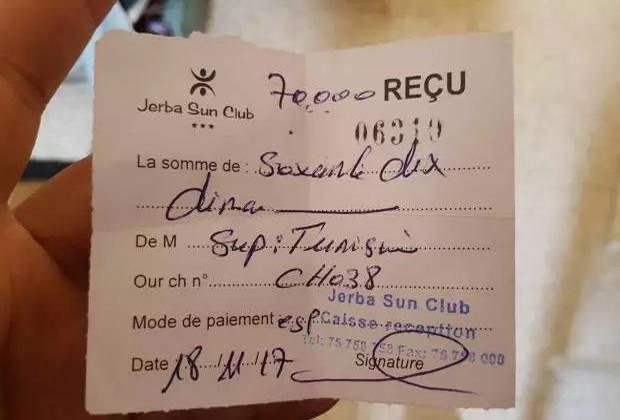 70,000 REÇU
Jerba Sun Club
***
06319
La somme de : Soxante dix
dina
De M Sup: Tunisie
Our ch n° CH038
Jerba Sun Club
Mode de paiement : esp Caisse reception
Tel: 75 758 758 Fax: 75 758 000
Date 18/11/17 Signature